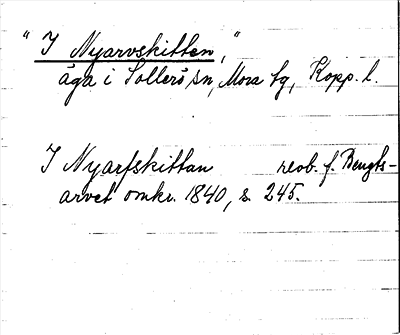 "I Nyarvskitten,"
äga i Sollerö sn, Mora tg, Kopp. l.
I Nyarfskittan reob. f. Bengts-
arvet omkr. 1840, s. 245.